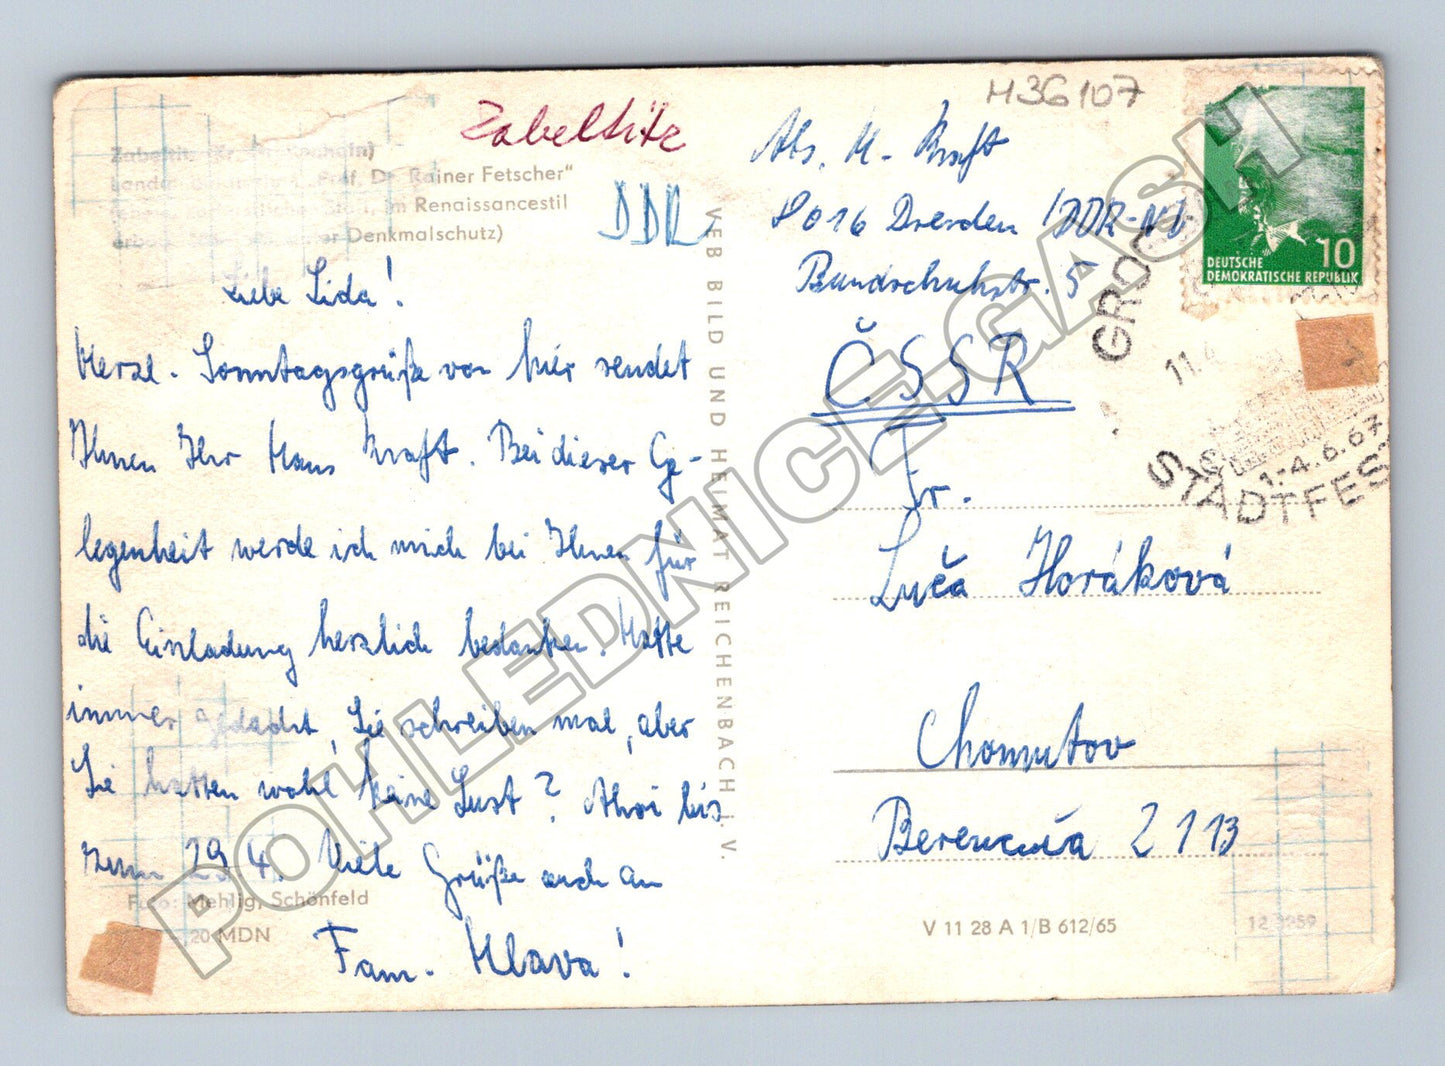 M36107
Zabeltitz
Rainer Fetscher"
im Renaissancestil
Denkmalschutz)
DDR
Liebe Lida!
Herzl. Sonntagsgrüße von hier sendet
Ihnen Ihr Hans Kraft. Bei dieser Ge-
legenheit werde ich mich bei Ihnen für
die Einladung herzlich bedanken. Hatte
immer gedacht, Sie schreiben mal, aber
Sie hatten wohl keine Lust? Ahoi bis
zum 29.4. Viele Grüße auch an
Fam. Hlava!
Foto: Mehlig, Schönfeld
20 MDN
VEB BILD UND HEIMAT REICHENBACH i. V.
Abs. H. Kraft
8016 Dresden DDR
Bundschuhstr. 5
ČSSR
Fr.
Luča Horáková
Chomutov
2113
V 11 28 A 1/B 612/65
DEUTSCHE
DEMOKRATISCHE REPUBLIK
10
11.
1.-4.6.67
STADTFEST
POHLEDNICE.GASH